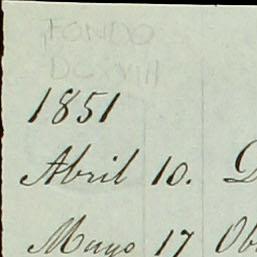 FONDO
DCXVIII
1851
Abril 10. D
Mayo 17 Ob